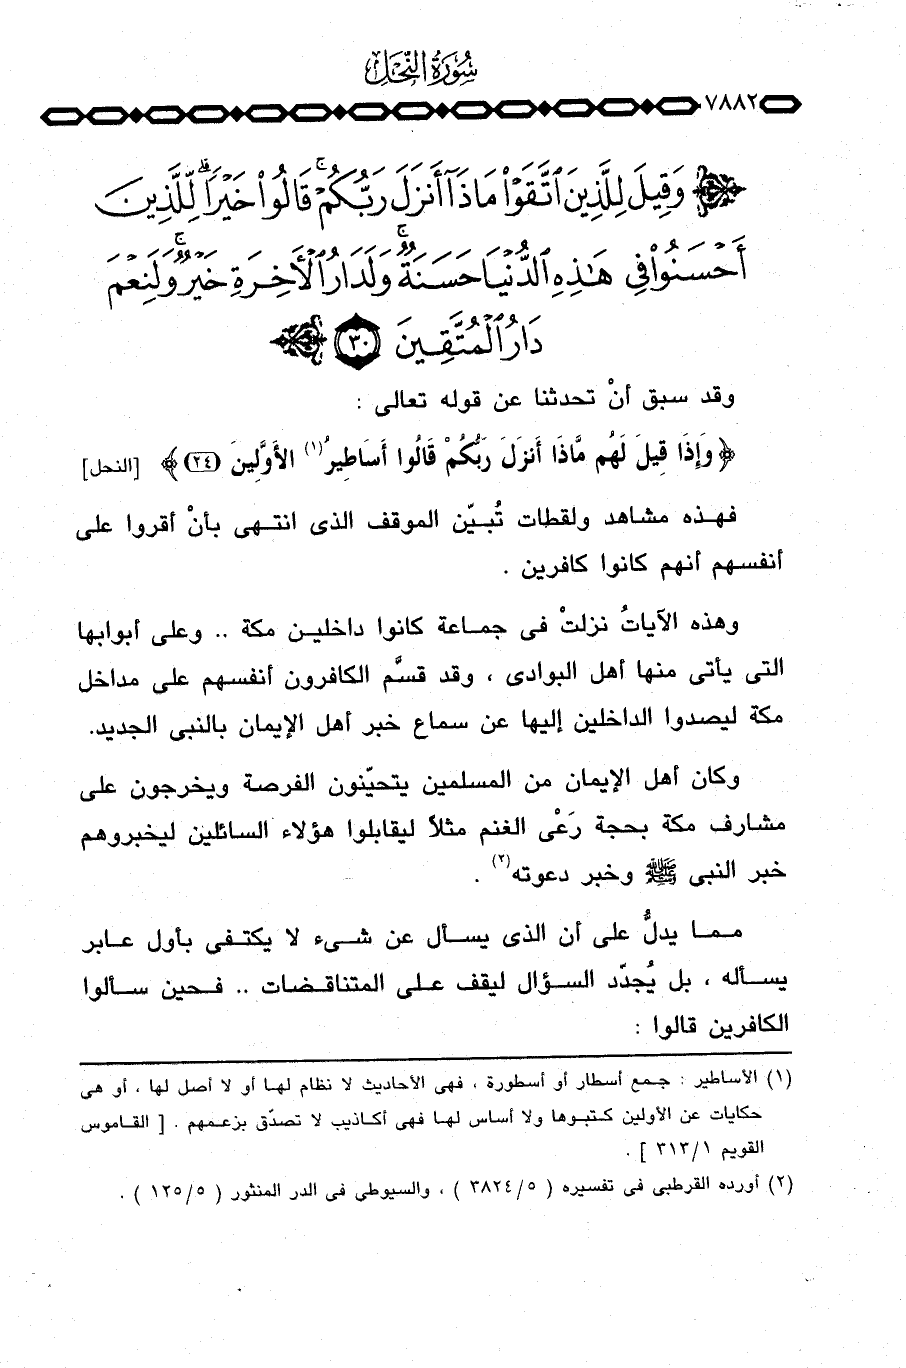 سُورَةُ النَّحْلِ
٧٨٨٢
وَقِيلَ لِلَّذِينَ ٱتَّقَوْا۟ مَاذَآ أَنزَلَ رَبُّكُمْ ۚ قَالُوا۟ خَيْرًا ۗ لِّلَّذِينَ
أَحْسَنُوا۟ فِى هَٰذِهِ ٱلدُّنْيَا حَسَنَةٌ ۚ وَلَدَارُ ٱلْأَخِرَةِ خَيْرٌ ۚ وَلَنِعْمَ
دَارُ ٱلْمُتَّقِينَ ٣٠
وقد سبق أنْ تحدثنا عن قوله تعالى :
﴿ وَإِذَا قِيلَ لَهُم مَّاذَا أَنزَلَ رَبُّكُمْ قَالُوا أَسَاطِيرُ(١) الأَوَّلِينَ (٢٤) ﴾ [النحل]
فهذه مشاهد ولقطات تُبيّن الموقف الذى انتهى بأنْ أقروا على
أنفسهم أنهم كانوا كافرين .
وهذه الآياتُ نزلتْ فى جماعة كانوا داخلين مكة .. وعلى أبوابها
التى يأتى منها أهل البوادى ، وقد قسَّم الكافرون أنفسهم على مداخل
مكة ليصدوا الداخلين إليها عن سماع خبر أهل الإيمان بالنبى الجديد.
وكان أهل الإيمان من المسلمين يتحيّنون الفرصة ويخرجون على
مشارف مكة بحجة رَعْى الغنم مثلاً ليقابلوا هؤلاء السائلين ليخبروهم
خبر النبى ﷺ وخبر دعوته(٢) .
مما يدلُّ على أن الذى يسأل عن شىء لا يكتفى بأول عابر
يسأله ، بل يُجدّد السؤال ليقف على المتناقضات .. فحين سألوا
الكافرين قالوا :
(١) الأساطير : جمع أسطار أو أسطورة ، فهى الأحاديث لا نظام لها أو لا أصل لها ، أو هى
حكايات عن الأولين كتبوها ولا أساس لها فهى أكاذيب لا تصدّق بزعمهم . [ القاموس
القويم ٣١٣/١ ] .
(٢) أورده القرطبى فى تفسيره ( ٣٨٢٤/٥ ) ، والسيوطى فى الدر المنثور ( ١٢٥/٥ ) .